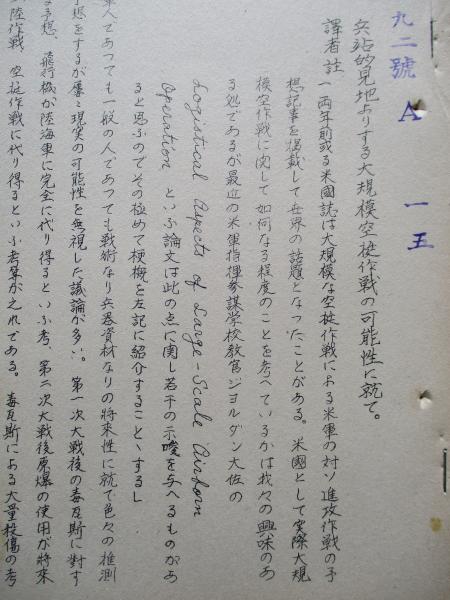 九二號 A 一五
兵站的見地よりする大規模空挺作戦の可能性に就て。
譯者註 一両年前或る米國誌は大規模な空挺作戦による米軍の対ソ進攻作戦の予
想記事を掲載して世界の話題となったことがある。米國として実際大規
模空作戦に関して如何なる程度のことを考へているかは我々の興味のあ
る処であるが最近の米軍指揮参謀学校教官ジヨルダン大佐の
Logistical Aspects of Large-Scale Airborn
Operation といふ論文は此の点に関し若干の示唆を与へるものがあ
ると思ふのでその極めて梗概を左記に紹介することゝする」
軍人であつても一般の人であつても戦術なり兵器資材なりの将来性に就て色々の推測
予想をするが屡々現実の可能性を無視した議論が多い。第一次大戦後の毒瓦斯に対す
る予想、飛行機が陸海軍に完全に代り得るといふ考、第二次大戦後原爆の使用が将来
陸作戦 空挺作戦に代り得るといふ考等が之れである。毒瓦斯による大量投傷の考